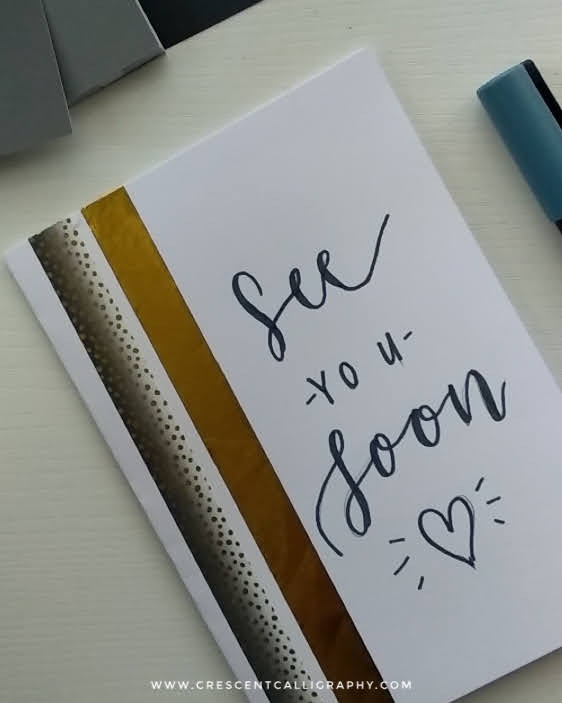 See
-YOU-
Soon
WWW.CRESCENTCALLIGRAPHY.COM